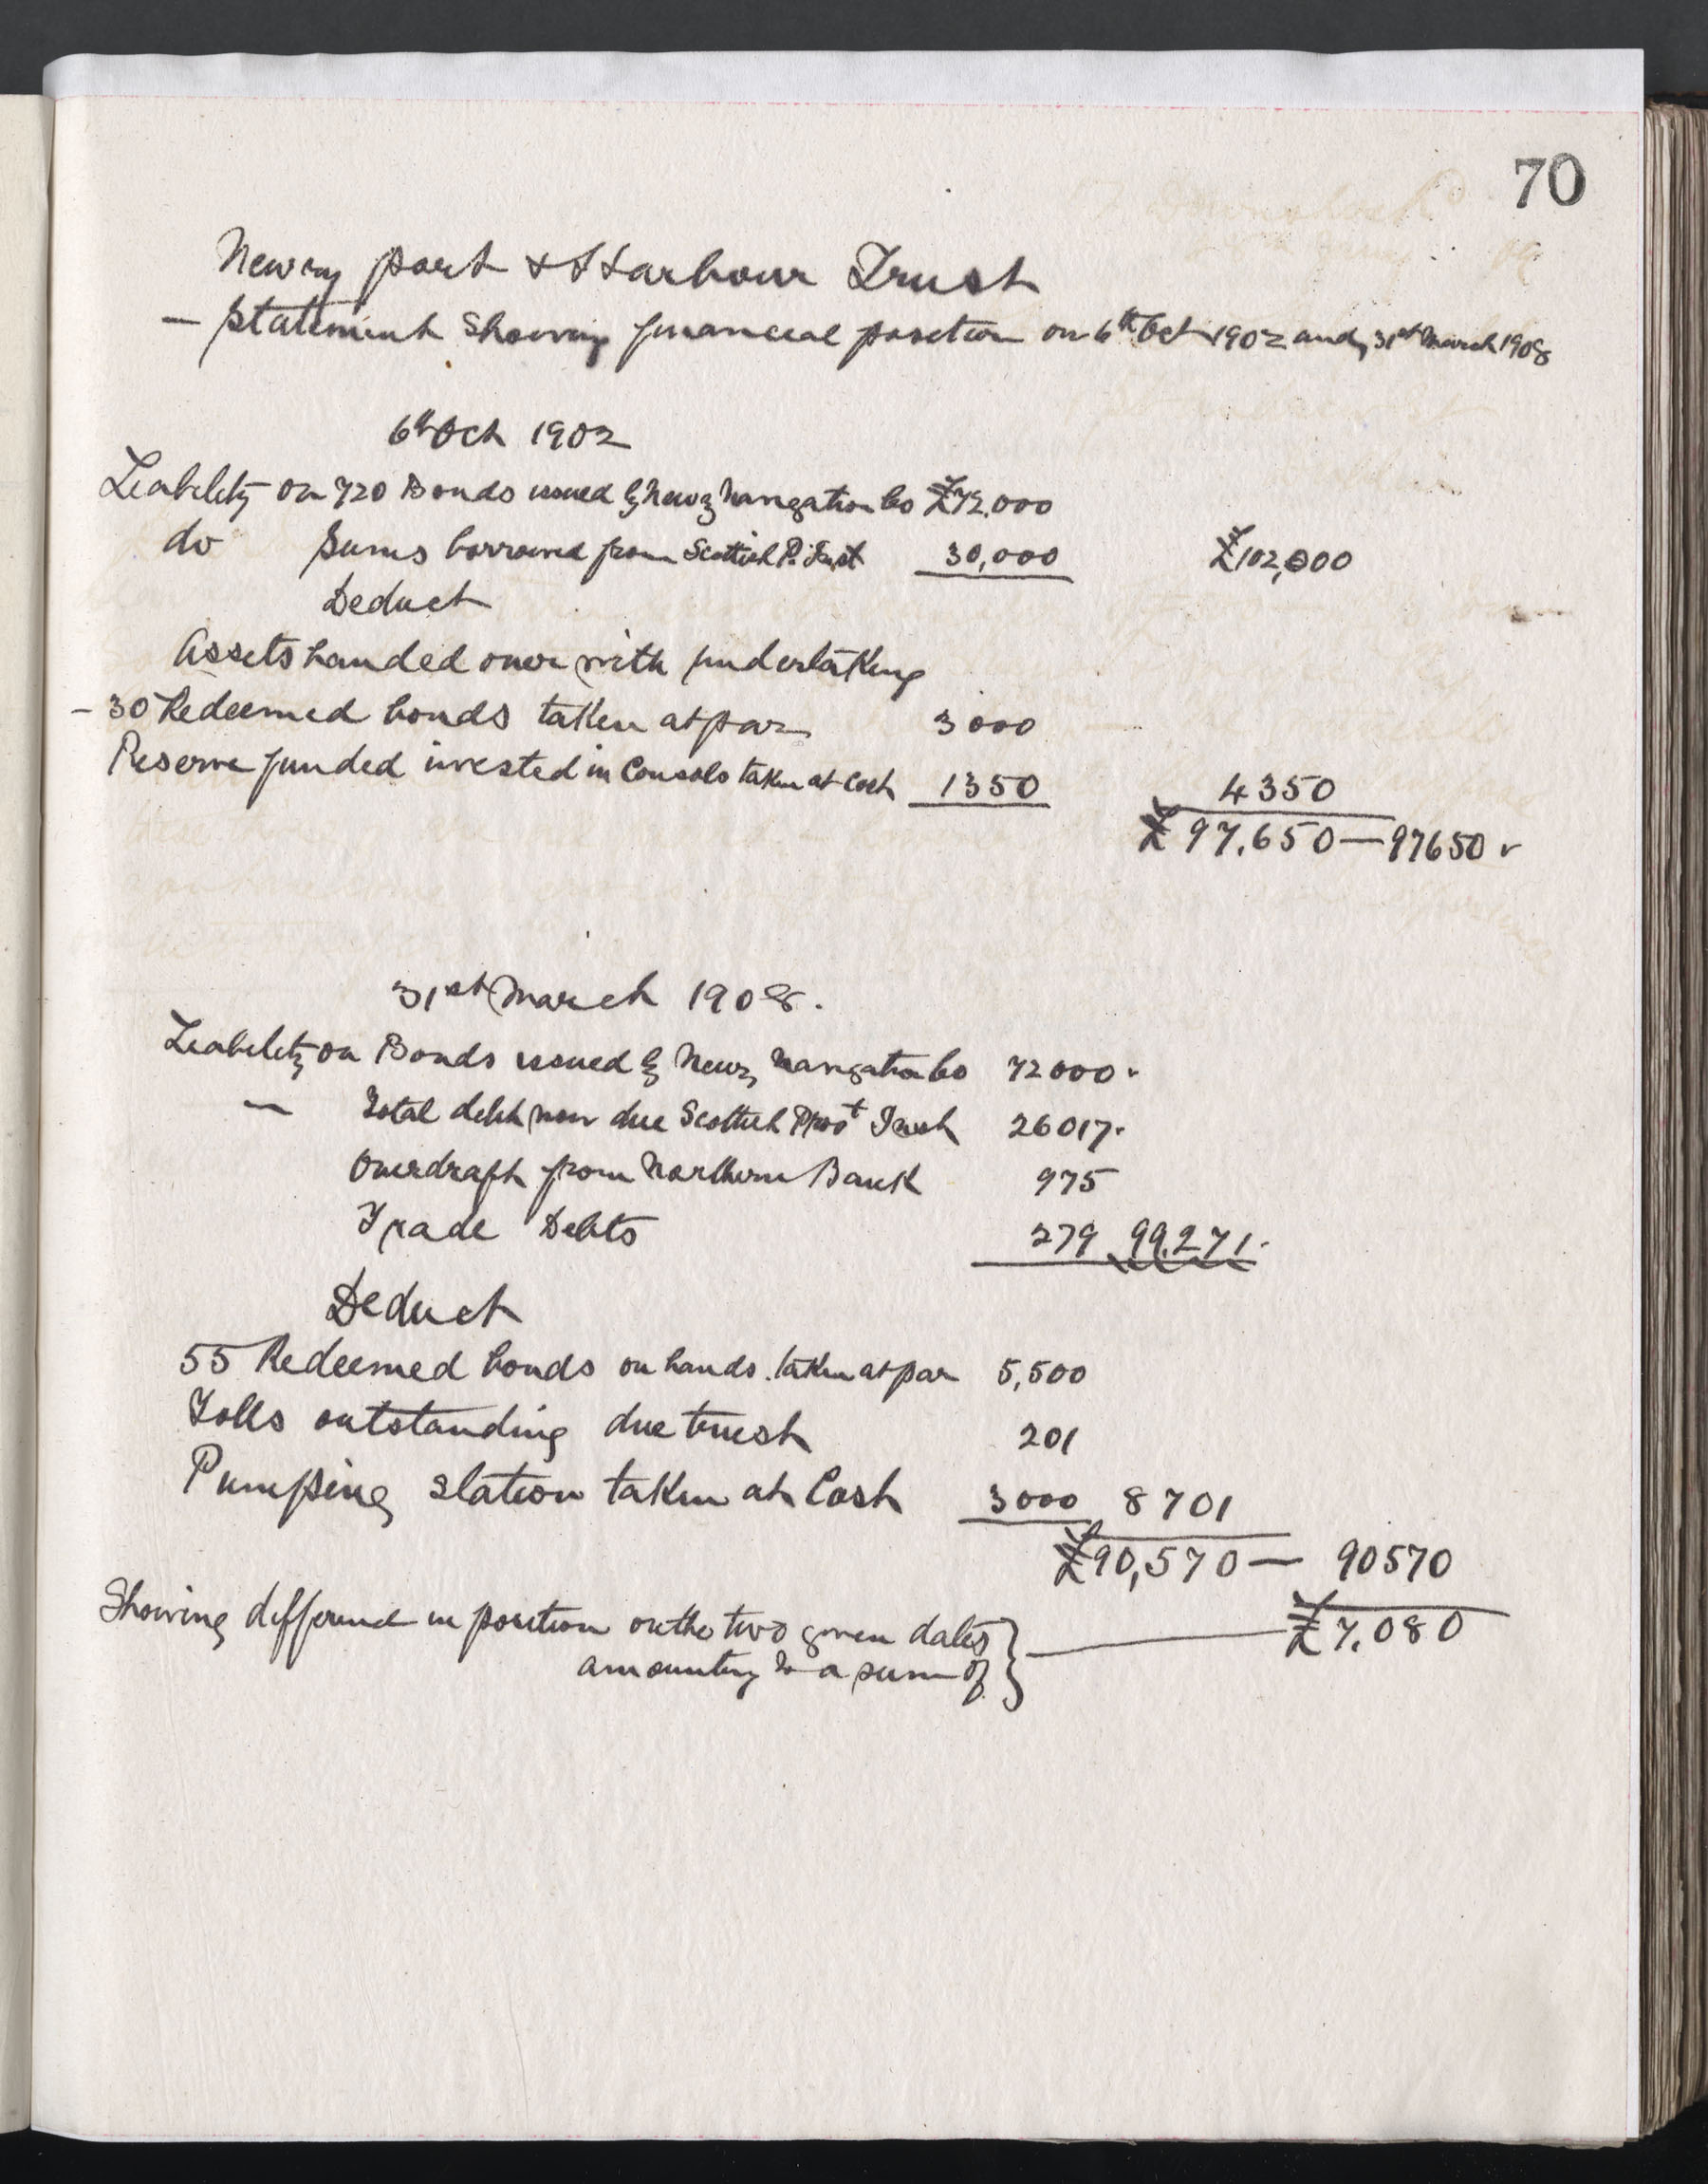 70
Newry port & Harbour Trust
— Statement Showing financial position on 6th Oct 1902 and 31st March 1908
6th Oct 1902
Liability on 720 Bonds issued by Newry Navigation Co £72,000
do Sums borrowed from Scottish P. Trust 30,000 £102,000
Deduct
Assets handed over with undertaking
- 30 Redeemed bonds taken at par 3000
Reserve funded invested in Consols taken at Cost 1350 4350
£97,650 — 97650
31st March 1908.
Liability on Bonds issued by Newry Navigation Co 72000
— Total debt now due Scottish Provt Trust 26017
Overdraft from Northern Bank 975
Trade Debts 279 99,271
Deduct
55 Redeemed bonds on hands. taken at par 5,500
Tolls outstanding due trust 201
Pumping Station taken at Cost 3000 8701
£90,570 — 90570
Showing difference in position on the two given dates
amounting to a sum of £7,080